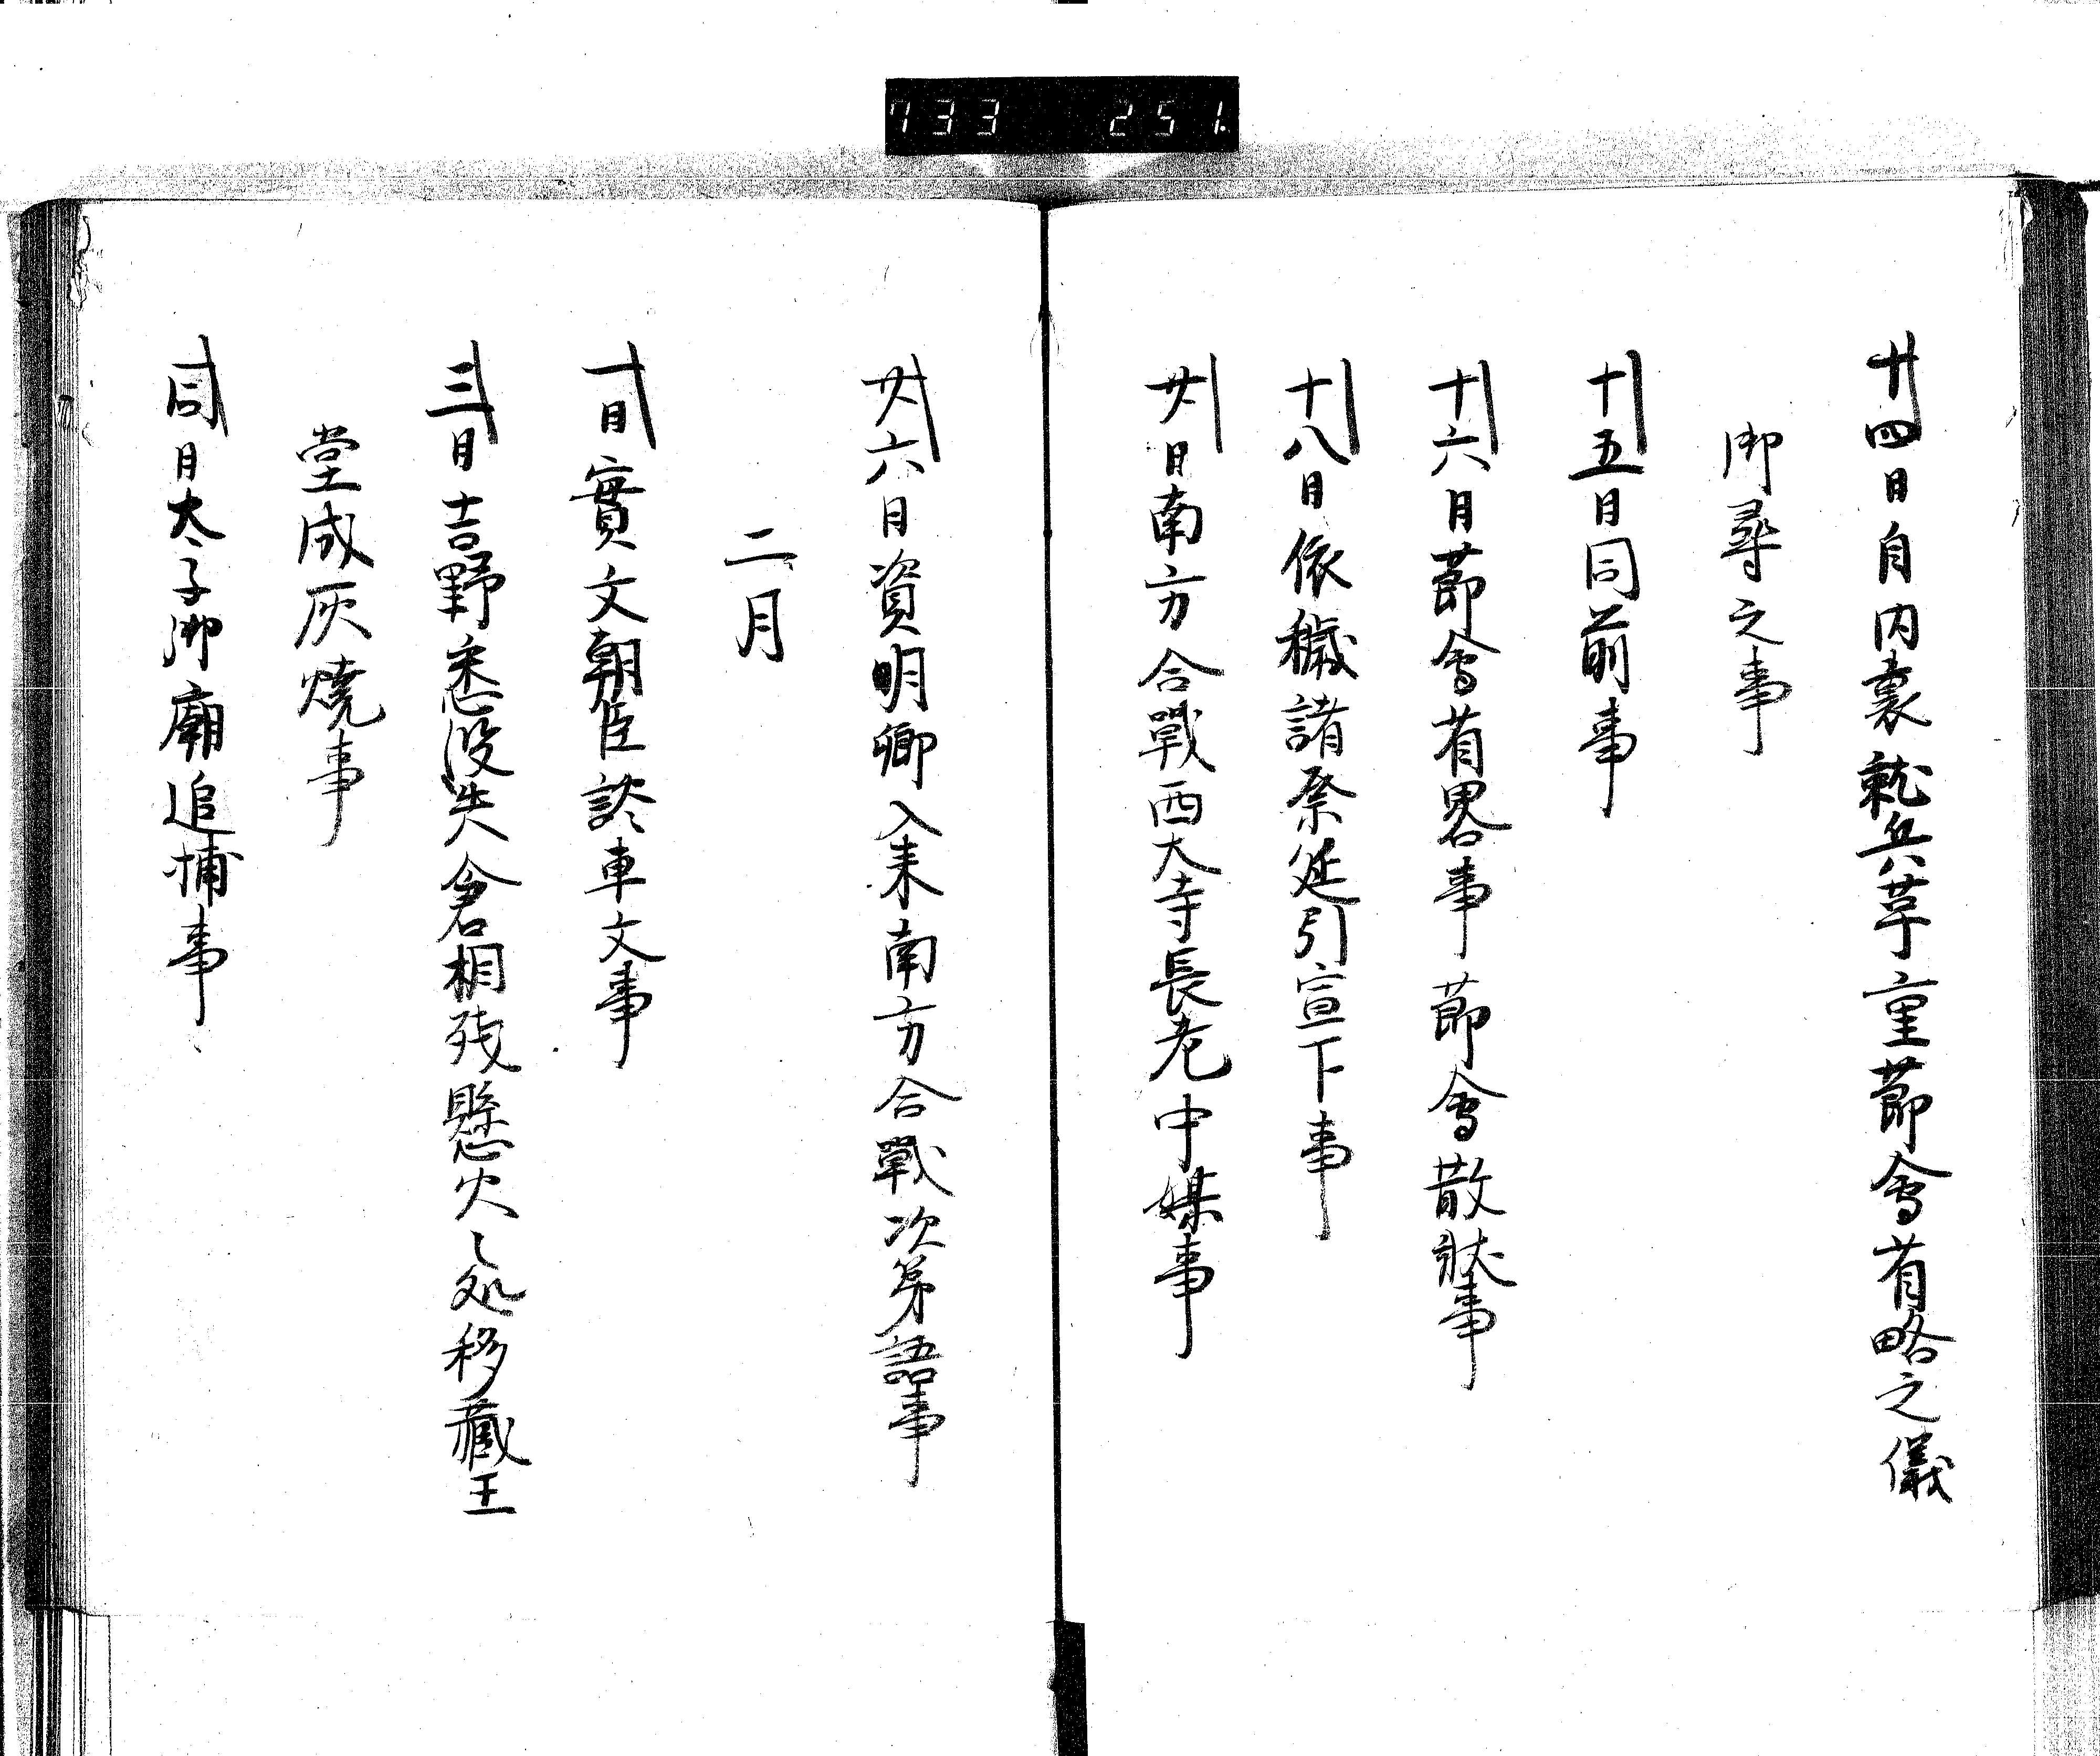 733 251
十四日自内裏就兵革重節會有略之儀
御尋之事
十五日同前事
十六日節會有畧事節會散状事
十八日依穢諸祭延引宣下事
廿日南方合戰西大寺長老中媒事
廿六日資明卿入来南方合戰次第語事
二月
一日實文朝臣談車文事
三日吉野悉没失舎屋相残懸火之処移蔵王
堂成灰燒事
同日太子御廟追捕事